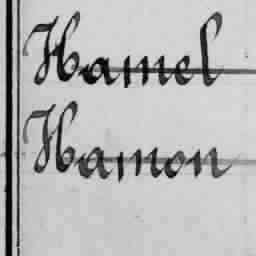 Hamel
Hamon